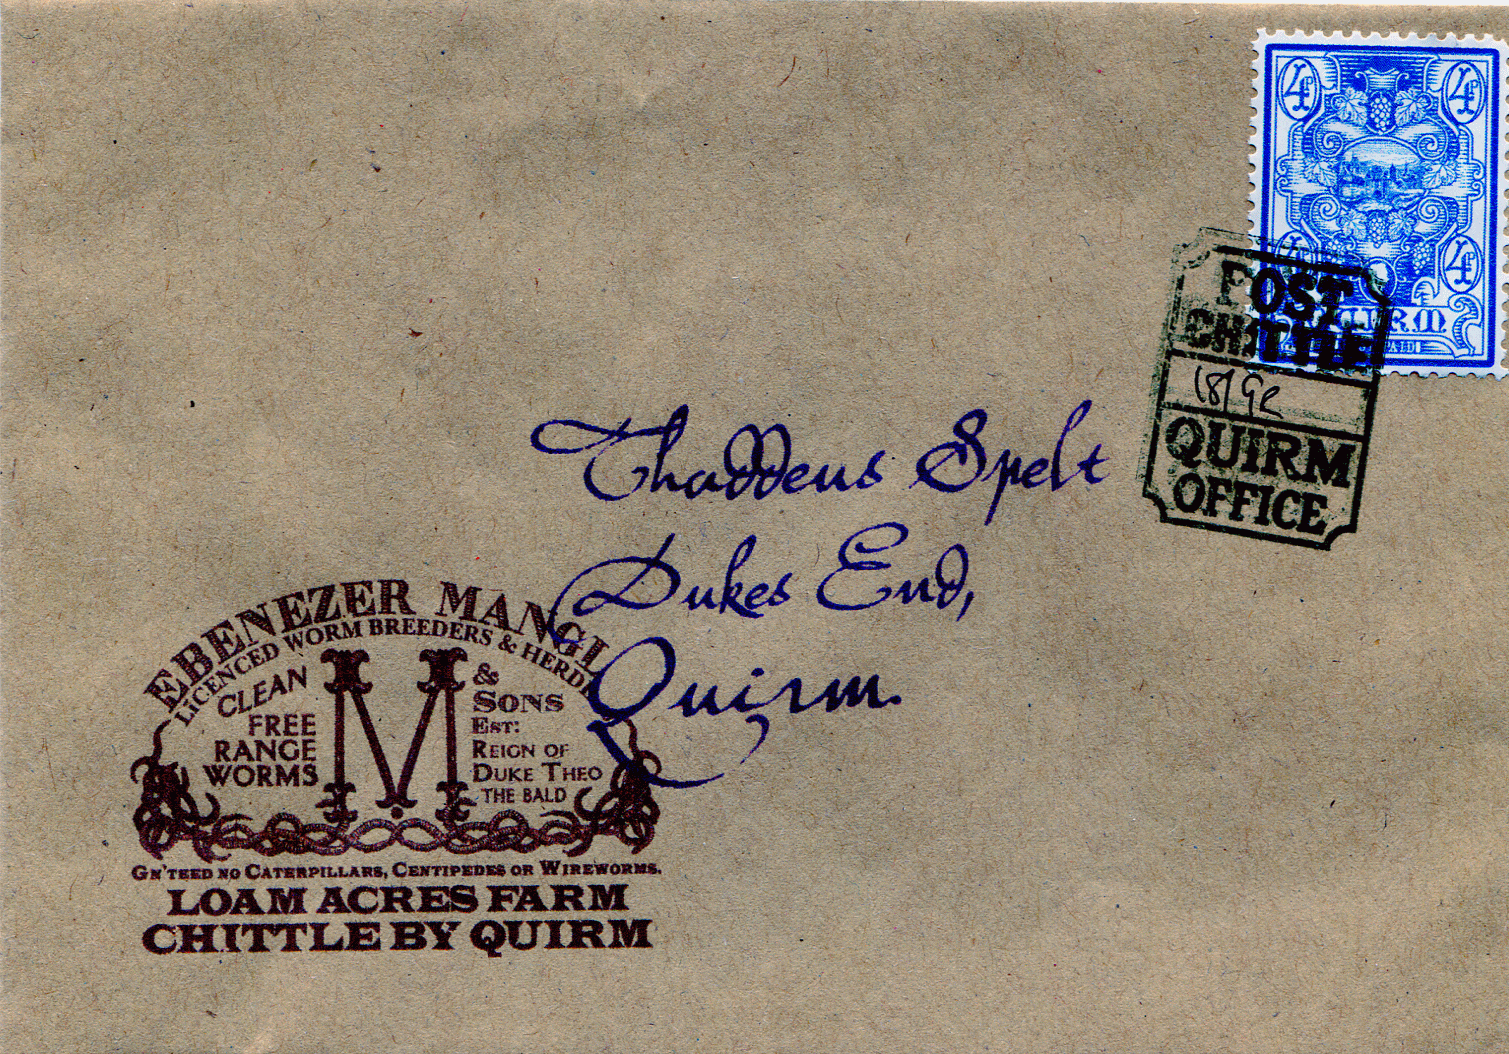 4p 4p
4p 4p
QUIRM
PAID
POST
CHITTLE
18/9
QUIRM
OFFICE
Thaddeus Spelt
Dukes End,
Quirm.
EBENEZER MANGL
LICENCED WORM BREEDERS & HERD
CLEAN
FREE
RANGE
WORMS
M
&
SONS
EST:
REIGN OF
DUKE THEO
THE BALD
GN'TEED NO CATERPILLARS, CENTIPEDES OR WIREWORMS.
LOAM ACRES FARM
CHITTLE BY QUIRM